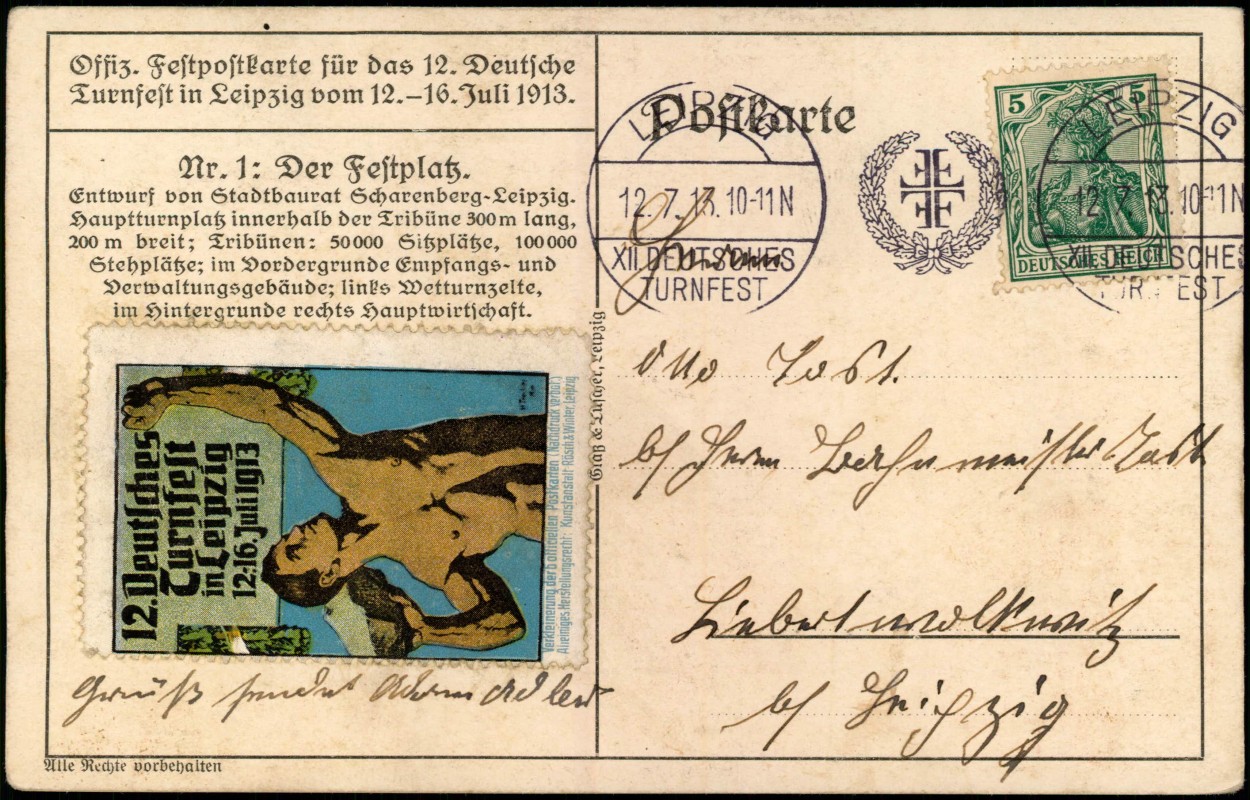 Offiz. Festpostkarte für das 12. Deutsche
Turnfest in Leipzig vom 12.–16. Juli 1913.
Nr. 1: Der Festplatz.
Entwurf von Stadtbaurat Scharenberg-Leipzig.
Hauptturnplatz innerhalb der Tribüne 300 m lang,
200 m breit; Tribünen: 50000 Sitzplätze, 100000
Stehplätze; im Vordergrunde Empfangs- und
Verwaltungsgebäude; links Wetturnzelte,
im Hintergrunde rechts Hauptwirtschaft.
12. Deutsches
Turnfest
in Leipzig
12.-16. Juli 1913
Verkleinerung der offiziellen Postkarten (Nachdruck verbot.)
Alleiniges Herstellungsrecht: Kunstanstalt Rösch & Winter, Leipzig
Gruß sendet
Alle Rechte vorbehalten
Postkarte
LEIPZIG
12.7.13.10-11N
XII DEUTSCHES
TURNFEST
5 5
DEUTSCHES REICH
LEIPZIG
12.7.13.10-11N
XII DEUTSCHES
TURNFEST
Herrn
Otto Jost.
b/ Herrn Jost
Liebertwolkwitz
b/ Leipzig